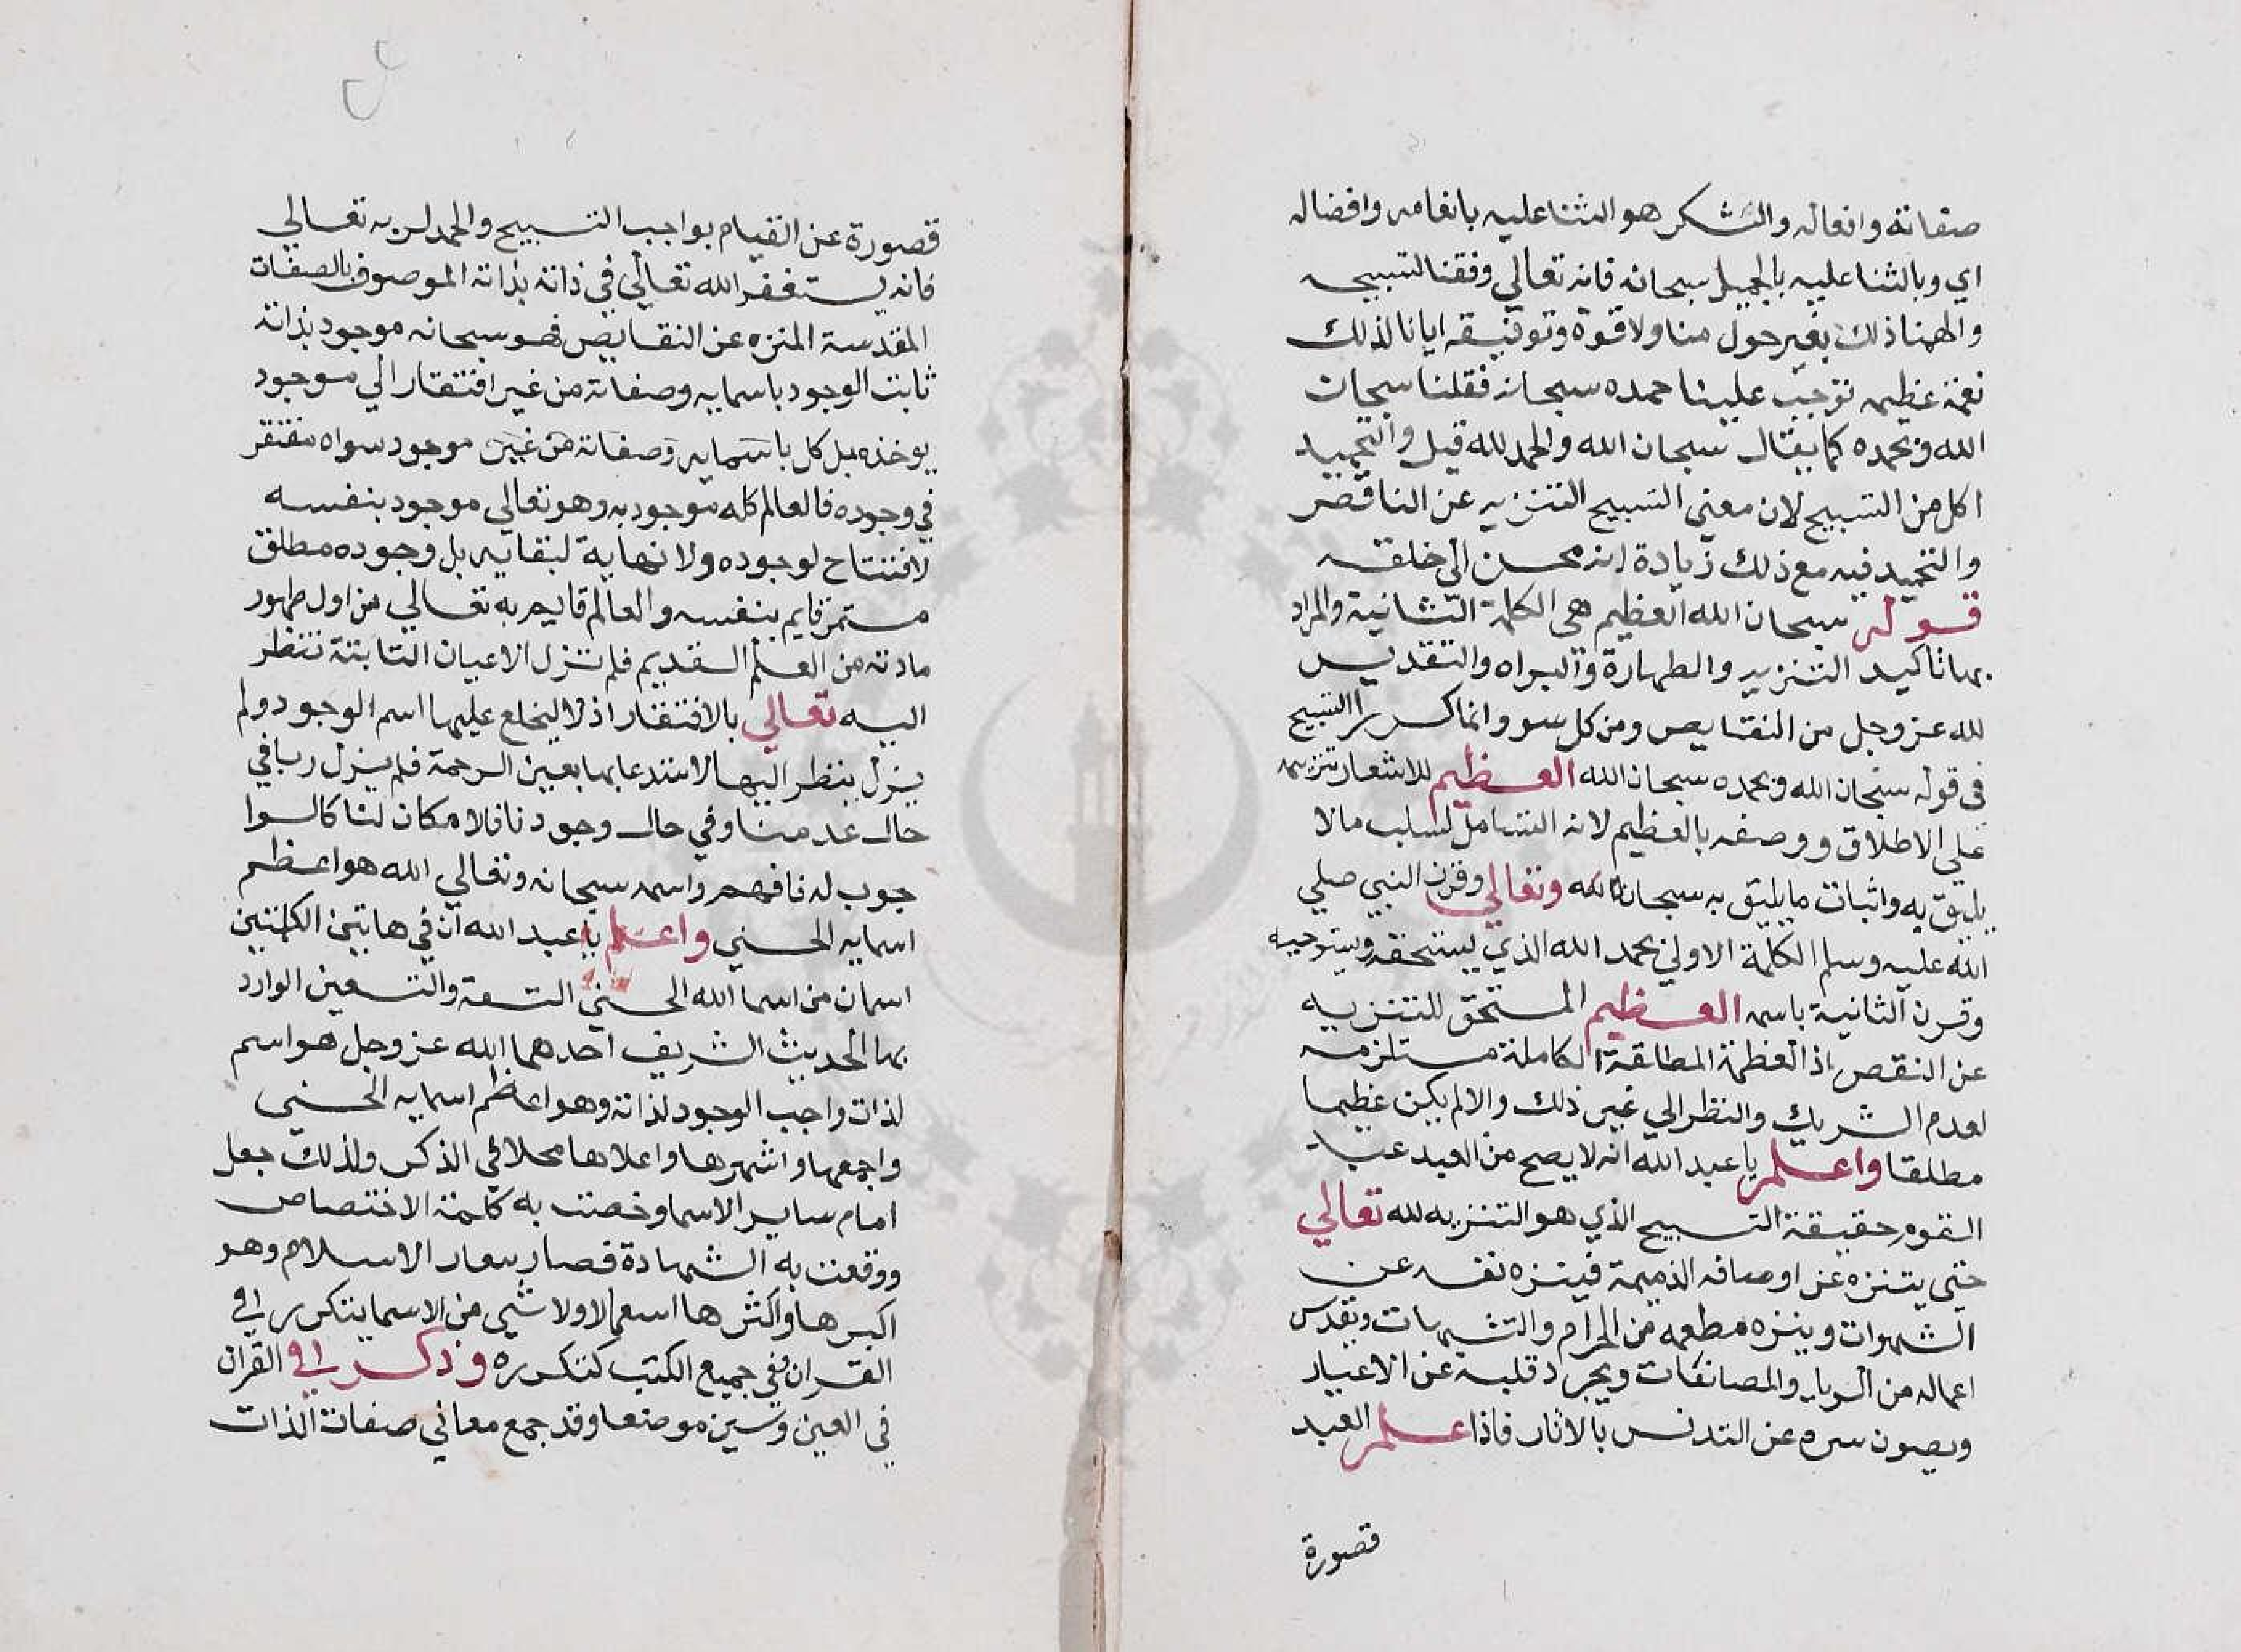 صفاته وافعاله والشكر هو الثنا عليه بانعامه وافضاله
اي وبالثنا عليه بالجميل سبحانه فانه تعالي وفقنا لتسبيحه
والهمنا ذلك بغير حول منا ولا قوة وتوفيقه ايانا لذلك
نعمة عظيمه توجب علينا حمده سبحانه فقلنا سبحان
الله وبحمده كما يقال سبحان الله والحمد لله قيل والتحميد
اكل من التسبيح لان معني التسبيح التنزيه عن الناقص
والتحميد فيه مع ذلك زيادة انه محسن الي خلقه
قوله سبحان الله العظيم هي الكلمة الثانية والمراد
بها تاكيد التنزيه والطهارة والبراه والتقديس
لله عز وجل من النقايص ومن كل سوو وانما كرر التسبيح
في قوله سبحان الله وبحمده سبحان الله العظيم للاشعار بتنزيهه
علي الاطلاق ووصفه بالعظيم لانه الشامل لسلب مالا
يليق به واثبات ما يليق به سبحانه وتعالي وقرن النبي صلي
الله عليه وسلم الكلمة الاولي بحمد الله الذي يستحقه ويستوجبه
وقرن الثانية باسمه العظيم المستحق للتنزيه
عن النقص اذ العظمة المطلقة الكاملة مستلزمه
لعدم الشريك والنظر الي غير ذلك والا لم يكن عظيما
مطلقا واعلم يا عبد الله انه لا يصح من العبد عبد
القوم حقيقة التسبيح الذي هو التنزيه لله تعالي
حتي يتنزه عن اوصافه الذميمة فينزه نفسه عن
الشهوات وينزه مطعمه من الحرام والتشبهات ويقدس
اعماله من الريا والمصانعات ويجرد قلبه عن الاغيار
ويصون سره عن التدنس بالاثار فاذا علم العبد
قصورة
قصورة عن القيام بواجب التسبيح والحمد لربه تعالي
فانه يستغفر الله تعالي في ذاته بذاته الموصوف بالصفات
المقدسة المنزه عن النقايص فهو سبحانه موجود بذاته
ثابت الوجود باسمايه وصفاته من غير افتقار الي موجود
يوخذه بل كل باسمايه وصفاته من غير موجود سواه مفتقر
في وجوده فالعالم كله موجود به وهو تعالي موجود بنفسه
لا افتتاح لوجوده ولا نهاية لبقايه بل وجوده مطلق
مستمر قايم بنفسه والعالم قايم به تعالي من اول ظهور
مادته من العلم القديم فلم تزل الاعيان الثابتة تنظر
اليه تعالي بالافتقار اذ لا يخلع عليها اسم الوجود ولم
يزل ينظر اليها لاستدعايها بعين الرحمة فلم يزل ربا في
حال عدمنا وفي حال وجودنا فالامكان لنا كالوا
جوب له فافهم واسمه سبحانه وتعالي الله هو اعظم
اسمايه الحسني واعلم يا عبد الله ان في هاتين الكلمتين
اسمان من اسما الله الحسني التسعة والتسعين الوارد
بها الحديث الشريف احدهما الله عز وجل هو اسم
لذات واجب الوجود لذاته وهو اعظم اسمايه الحسني
واجمعها واشهرها واعلاها محلا في الذكر ولذلك جعل
امام ساير الاسما وخصت به كلمة الاختصاص
ووقعت به الشهادة فصار سعار الاسلام وهو
اكبرها واكثرها اسعمالا ولا شي من الاسما يتكرر في
القران وفي جميع الكتب كتكرره وذكر في القران
في الفين وستين موضعا وقد جمع معاني صفات الذات